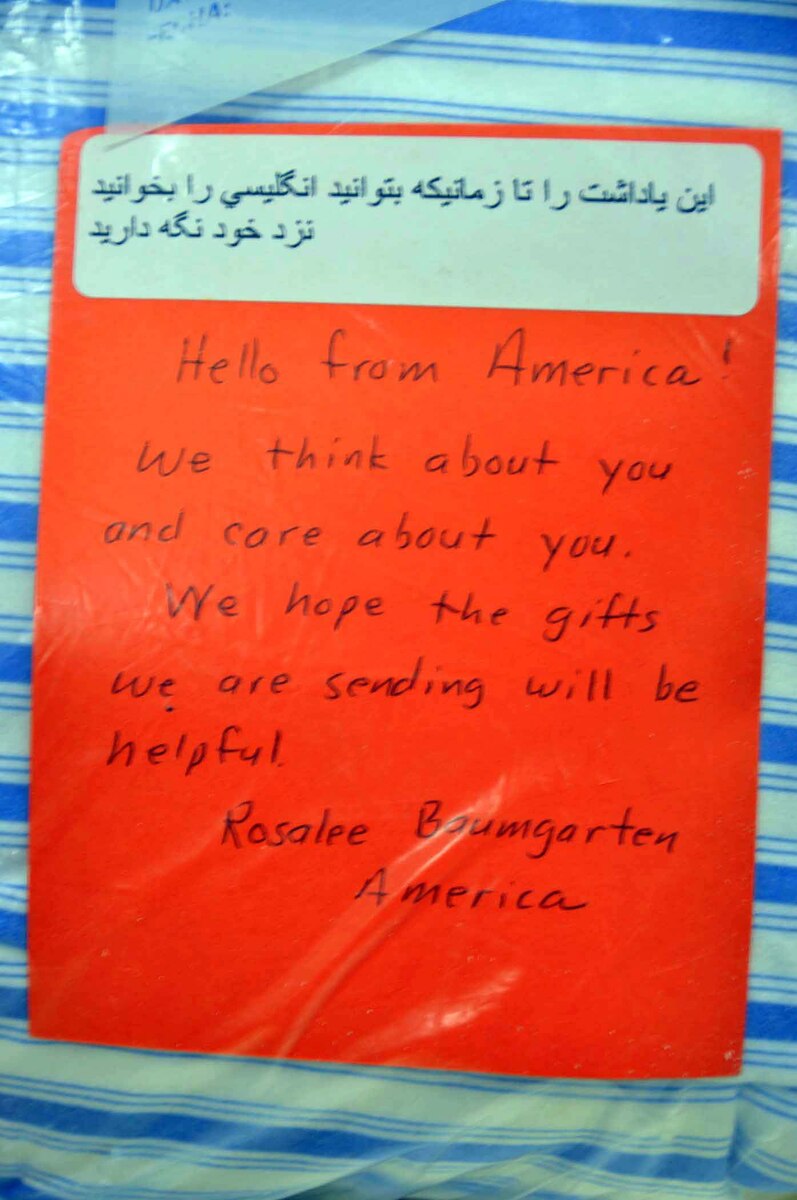 این یاداشت را تا زمانیکه بتوانید انگلیسي را بخوانید
نزد خود نگه دارید
Hello from America!
We think about you
and care about you.
We hope the gifts
we are sending will be
helpful.
Rosalee Baumgarten
America